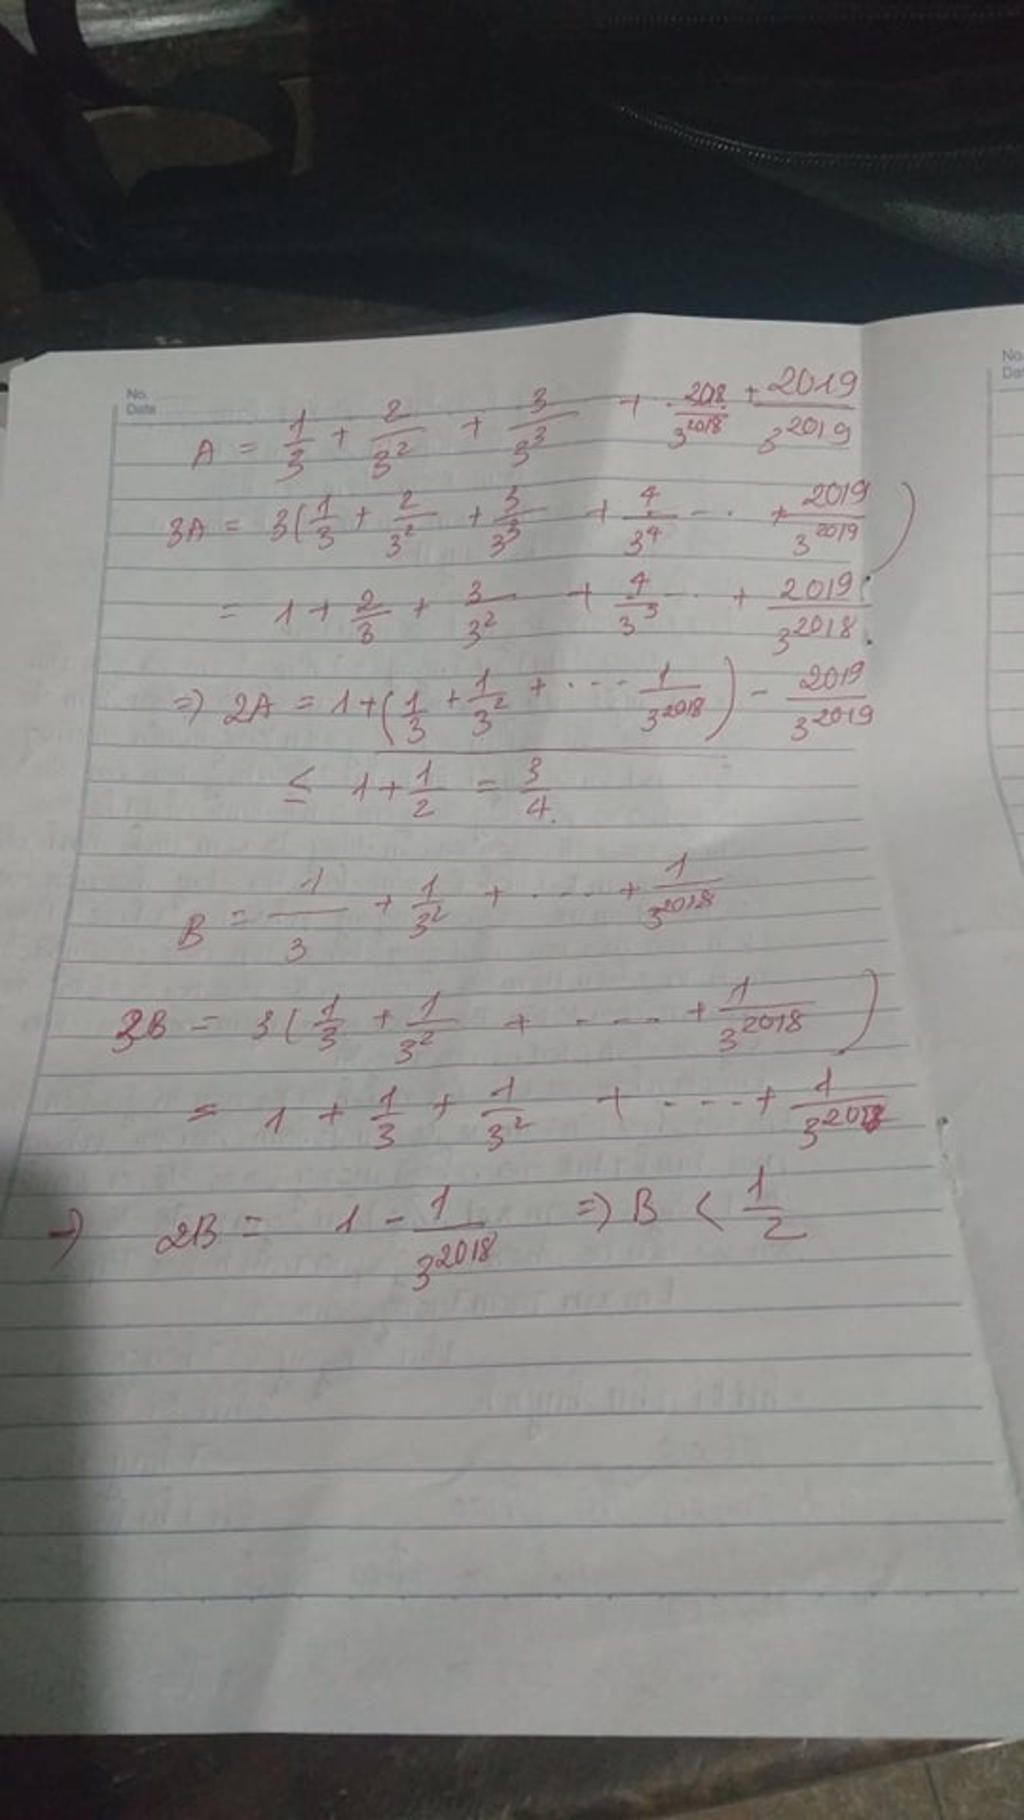 No.
Date
No.
A = 1/3 + 2/3^2 + 3/3^3 + . 2018/3^2018 + 2019/3^2019
3A = 3(1/3 + 2/3^2 + 3/3^3 + 4/3^4 ... + 2019/3^2019)
= 1 + 2/3 + 3/3^2 + 4/3^3 ... + 2019/3^2018
=> 2A = 1 + (1/3 + 1/3^2 + .... 1/3^2018) - 2019/3^2019
≤ 1 + 1/2 = 3/4.
B = 1/3 + 1/3^2 + .... + 1/3^2018
3B = 3(1/3 + 1/3^2 + .... + 1/3^2018)
= 1 + 1/3 + 1/3^2 + .... + 1/3^2017
→ 2B = 1 - 1/3^2018 => B < 1/2